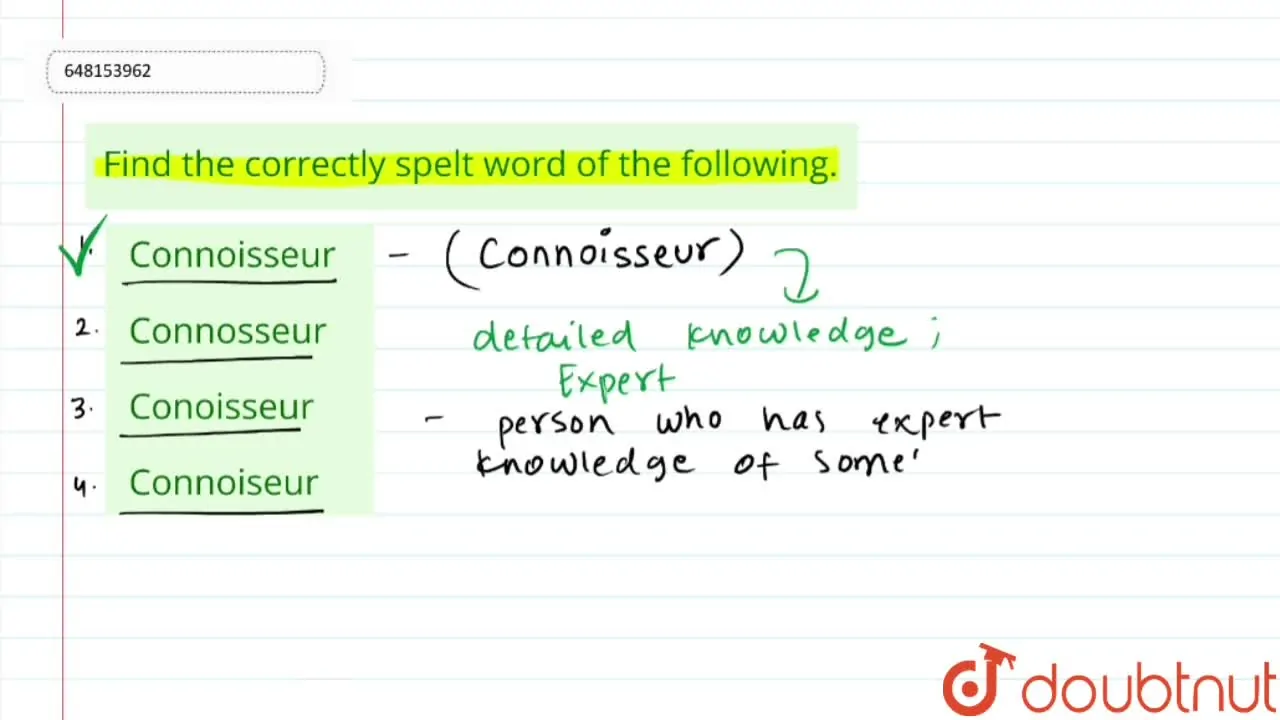 648153962
Find the correctly spelt word of the following.
1. Connoisseur - (Connoisseur)
2. Connosseur
detailed knowledge;
Expert
3. Conoisseur
- person who has expert
knowledge of some'
4. Connoiseur
doubtnut